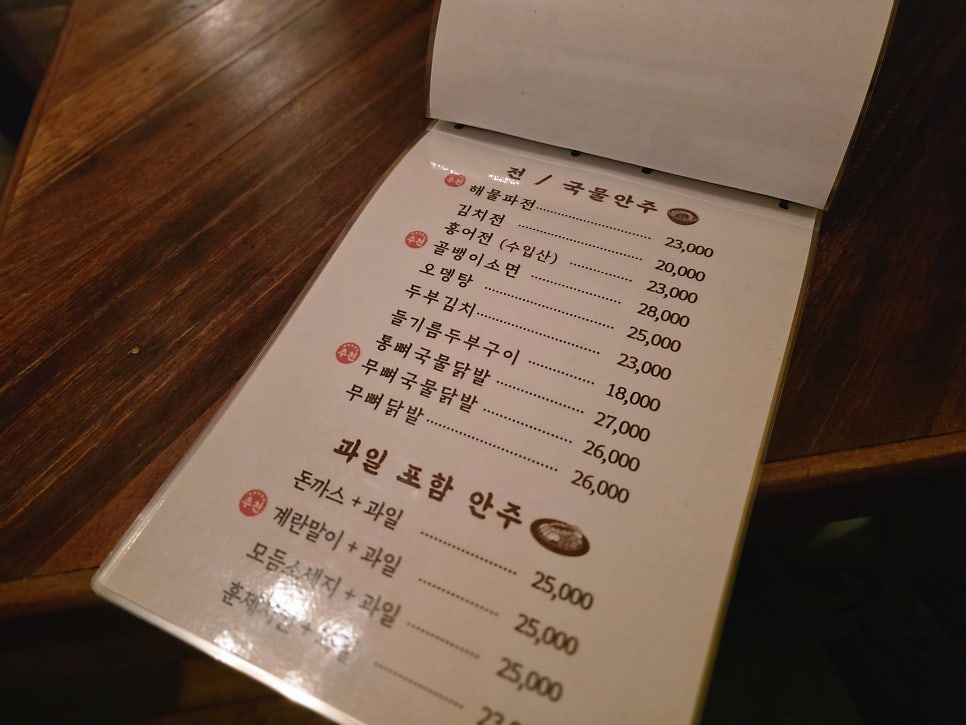 전 / 국물안주
추천 해물파전 23,000
김치전 20,000
홍어전 (수입산) 23,000
추천 골뱅이소면 28,000
오뎅탕 25,000
두부김치 23,000
들기름두부구이 18,000
통뼈국물닭발 27,000
추천 무뼈국물닭발 26,000
무뼈닭발 26,000
과일 포함 안주
돈까스 + 과일 25,000
추천 계란말이 + 과일 25,000
모듬소세지 + 과일 25,000